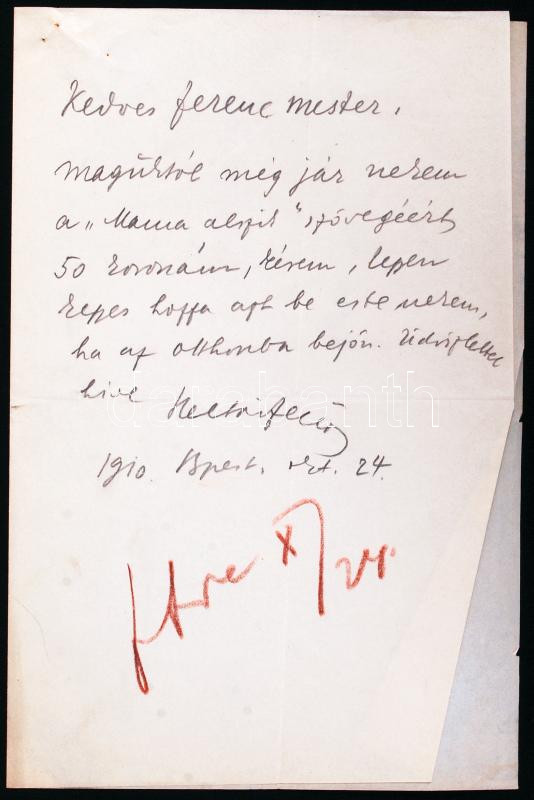 Kedves Ferenc mester,
magúktól még jár nekem
a „Mama alszik" szövegéért
50 koronám, kérem, legyen
képes hozza azt be este nekem,
ha az otthonba bejön. Üdvözlettel
híve Heltai Jenő
1910. Bpest. okt. 24.
darabanth
X/24.